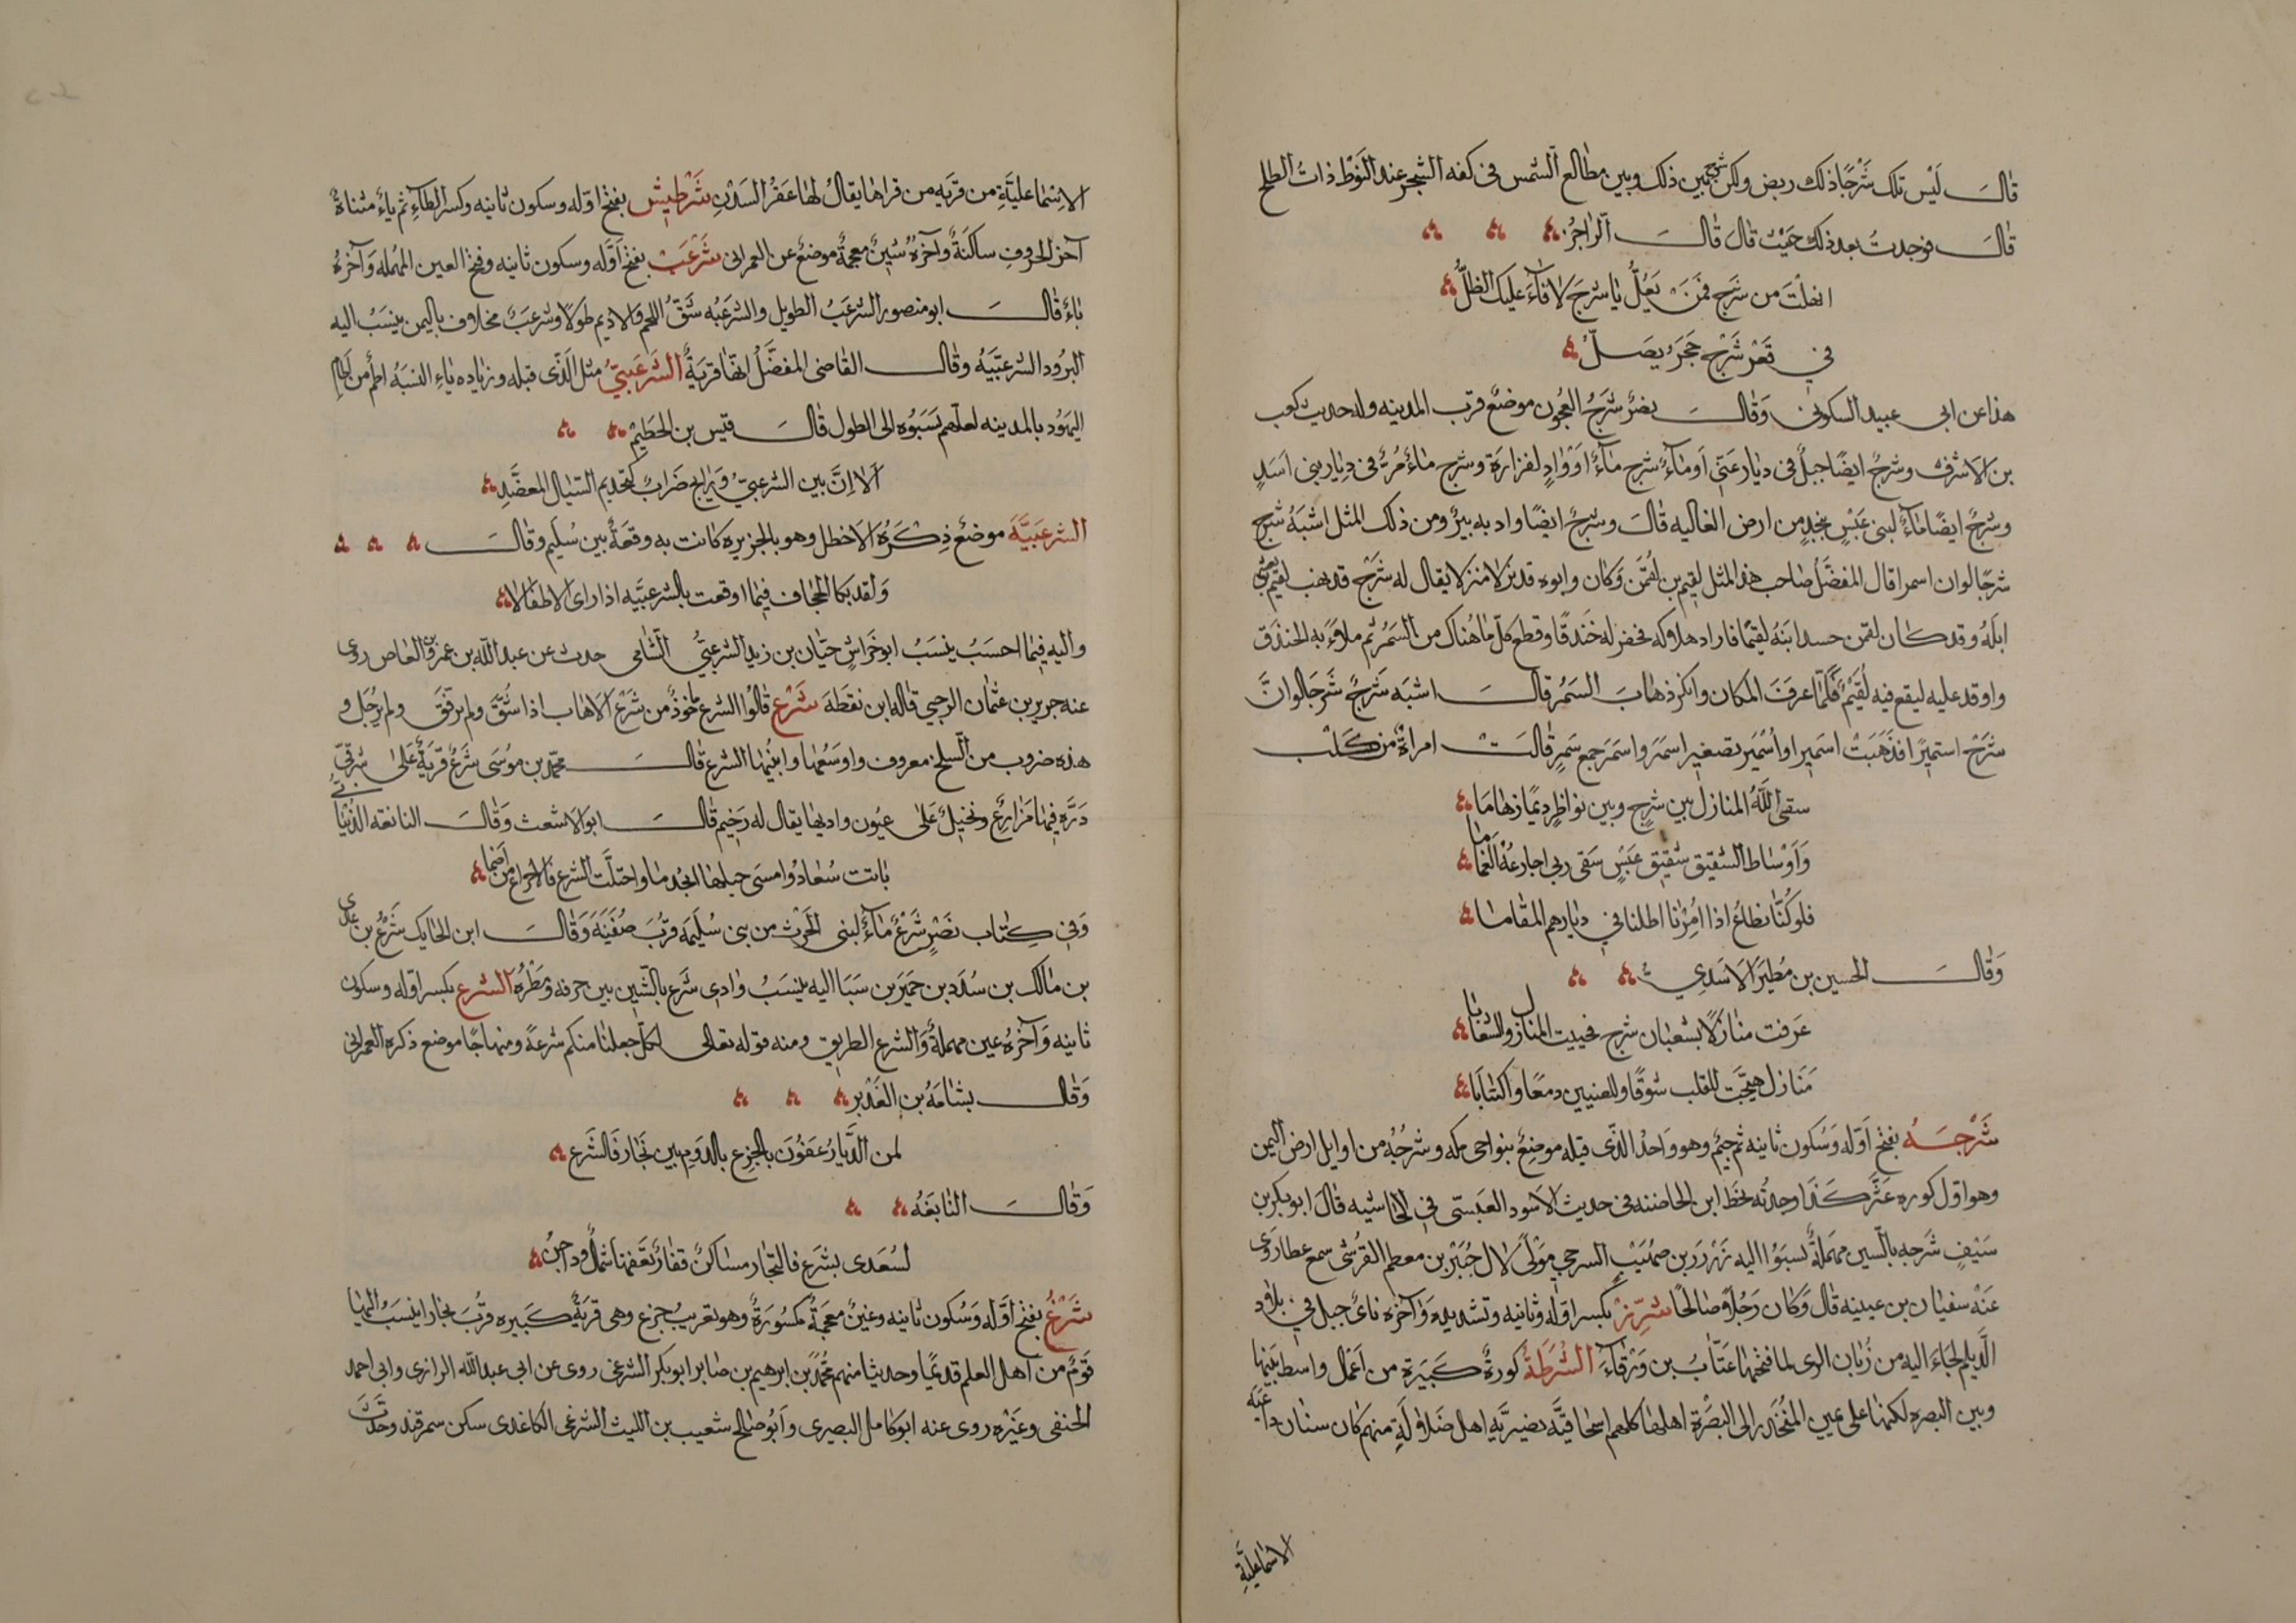 قالَ لَيْسَ تلك شَرْجًا ذلك ربض ولكن شرج بين ذلك وبين مطالع الشمس في كفه الشجر عند النَوْط ذات الطلح
قالَ فوجدتُ بعد ذلك حَيْث قالَ قالَ الراجزُ
انهلْتَ من شَرج فَمَنْ يَعُلُّ يا شرجَ لا فاءَ عليك الظلُّ
في تَعْر شَرْج حَجَرٌ يصَلّ
هذا عن ابي عبيد السكوني وَقالَ نصرٌ شَرجُ العجُون موضعٌ قرب المدينه وله حديث كعب
بن الاشرف وشرجٌ ايضًا جبلٌ في ديار غَنّي اَو ماءٌ شرج ماءٌ اوْ وادٍ لفزارة وشرج ماءٌ مُرٌّ في ديار بني اَسَدٍ
وشرجٌ ايضًا ماءٌ لبني عَبْسٍ بنجدٍ من ارض العاليه قالَ وشرجٌ ايضًا واد به بيرٌ ومن ذلك المثل اشبَهُ شَرج
شرجًا لو ان اسمرا قال المفضَّلُ صاحب هذا المثل لقيم بن لُقمَن وَكان وابوه قد نزلا منزلا يقال له شَرْج فذهب لقيم يعشي
ابله وقد كان لقمن حسد ابنَهُ لقيمًا فاراد هلاكه فحفر له خَندقًا وقطع كلّ ما هُناك من السَمُر ثم ملاءَ به الخندَق
واوقد عليه ليقع فيه لُقَيْمٌ فَلَمّا عرفَ المكان وانكر ذهابَ السَمُر قالَ اشبَه شَرْجٌ شَرجًا لو انَّ
شَرْج اسيمرًا فذَهَبَتْ اسَميرا واُسَمير تصغير اسمَر واسمَر جمع سَمُرٍ قالَتْ امراةٌ من كَلْب
سقى اللَّهُ المنازل بين شرجٍ وبين نواظرٍ ديمًا زهاما
وَاَوْساط الشقيق شقيق عَبْسٍ سَقى ربي اجارعَهُ الغَماما
فلو كُنّا نطاعُ اذا اُمِرْنا اطلنا في ديارهم المقاما
وَقالَ الحسين بن مُطَير الاسَدِي
عَرفت منازلاً بشعبان شرج فحييت المنازل والشعابا
مَنازل هيَّجَتْ للقلب شوقًا وللعينين دمعًا واكتئابَا
شَرْجَــهُ بفتح اَوّله وَسُكون ثانيه ثم جيمٌ وهو واحدُ الذّي قبله موضِعٌ بنواحي مكه وشرجُهُ من اوايل ارض اليمن
وهو اوّل كوره عَثَّر كَذا وجدتُه بخطّ ابن الحاضنه في حديث الاسَود العَنسيّ في الحاشيه قالَ ابو بكر بن
سَيْفٍ شَرجه بالسين مهمَلةٌ نسبَوُا اليه زَرزَر بن صُهَيْب السرجي مَوْلىً لال جُبَيْر بن معطم القرُشي سمع عطا روَى
عَنْهُ سفيان بن عيينه قال وَكان رَجُلاً صالحًا شِرِّزْ بكسر اوّله وثانيه وتشديده وَآخره زايٌ جبل في بلاد
الدَّيلم لجاءَ اليه من زُبان الري لما فتحها عَتّابُ بن وَرْقاءَ الشُرَطَةُ كورةٌ كَبيرَة من اَعمَل واسط بَينها
وبين البصره لكنها على عين المنُحَدر الى البصْرَة اهلها كلهم اسحاقيَّه نصَيريَّه اهل ضَلالَةٍ منهم كان سنان داعيَة
الاسماعليّةِ
الاِسْماعليَّةِ من قريَه من قراها يقالُ لها عَقرُ السَدْنِ شَرْطِيْش بفتح اوّله وسكون ثانيه وكسر الطاءِ ثم ياءٌ مثناةٌ
آخر الحروفِ ساكنَةٌ وآخرُهُ شينٌ معجمةٌ موضعٌ عن العمراني شَرْعَبْ بفتح اَوّله وسكون ثانيه وفتح العين المُهمله وَآخرُهُ
باءٌ قالَ ابو منصور الشرعَبُ الطويل والشرعَبَهُ شَقُّ اللحم والاديم طولاً وشرعبٌ مخلاف باليمن ينسَبُ اليه
البرُود الشرعبيَّهُ وقال القاضي المفضَّلُ انّها قريَةٌ الشَرْعَبيُّ مثل الَذّي قبله وزياده ياء النسبَهُ اُطمٌ من آطام
اليهَوُد بالمدينه لعلّهم نَسَبُوُه الى الطول قالَ قيس بن الحَطَيِم
اَلا اِنَّ بين الشرعبيّ وَراتِج ضَرابٌ كتجذيم السَيال المعضَّدِ
الشرعَبيَّهَ موضعٌ ذِكَرَهُ الاخطل وهو بالجزيره كانت به وقعَةٌ بين سُلَيم وقالَ
وَلقد بكا الحجاف فيما اوقعت بالشرعبيَّه اذا راى الاطفالا
واليه فيما احسَبُ ينسَبُ ابو خَراشٍ حيّان بن زيد الشرعبيّ الشامي حدث عن عبد اللّه بن عمرو بن العاص روى
عنه حريز بن عثمان الرحبي قاله ابن نقطَهَ شَرْع قالوُا الشرع ماخوذٌ من شَرْع الاهاب اذا شُقَّ ولم يزقّق ولم يرُجل و
هذه ضروب من السلخ معروف واوسَعُها وابينُها الشرع قالَ محمّد بن موُسَى شَرعٌ قريَةٌ عَلى شرقيّ
دَرَّه فيها مَزارعٌ ونخيلٌ عَلى عيُون واديها يقال له رَخيم قالَ ابوَ الاشعث وَقالَ النابغه الذُبْيانيُّ
باتت سُعادُ وامسَى حبلها انجذما واحتلَّت الشرع فالاجزاع من اَضما
وَفي كِتاب نَصْرٍ شَرْعٌ ماءٌ لبني الحَرْث من بني سُلَيَم قُربَ صُفَيَنَه وَقالَ ابن الحايك شَرْعُ بن عَدي
بن مالك بن سُدَد بن حِميَر بن سَبَا اليه يُنسَبُ وَادي شَرْع بالشين بين حرفه ومَطْرُه الشرع بكسر اوّله وسكون
ثانيه وَآخرُهُ عين مهملةٌ وَالشرع الطريق ومنه قوله تعالى لكلّ جعلنا منكم شرعةً ومنهاجًا موضع ذكره العمراني
وَقالَ بشامَهُ بن الغَدير
لمن الدَّيارُ عَفَوُنَ بالجزع بالدَومِ بين نَجَار فَالشَرع
وَقالَ النابغَهُ
لسُعدى بشَرع فالبحار مساكنٌ قفارٌ تعَفيها شمالٌ وداجنُ
شَرْغُ بفتح اَوَّله وَسُكون ثانيه وغينٌ معجمَةٌ مكسُورَةٌ وهو تعريبُ جزع وهي قريَةٌ كَبيره قرُبَ بخارا ينسَبُ اليها
قَومٌ من اَهل العلم قديمًا وحديثا منهم محُمَّد بن ابرهيم بن صابر ابو بكر الشرغي روى عن ابي عبد اللّه الرازي وابي احمد
الحنفي وغيَرْه روى عنه ابو كامل البصيري وَاَبوُ صالح شعيب بن الليث الشرغي الكاغدى سكن سمرقند وحدّثَ